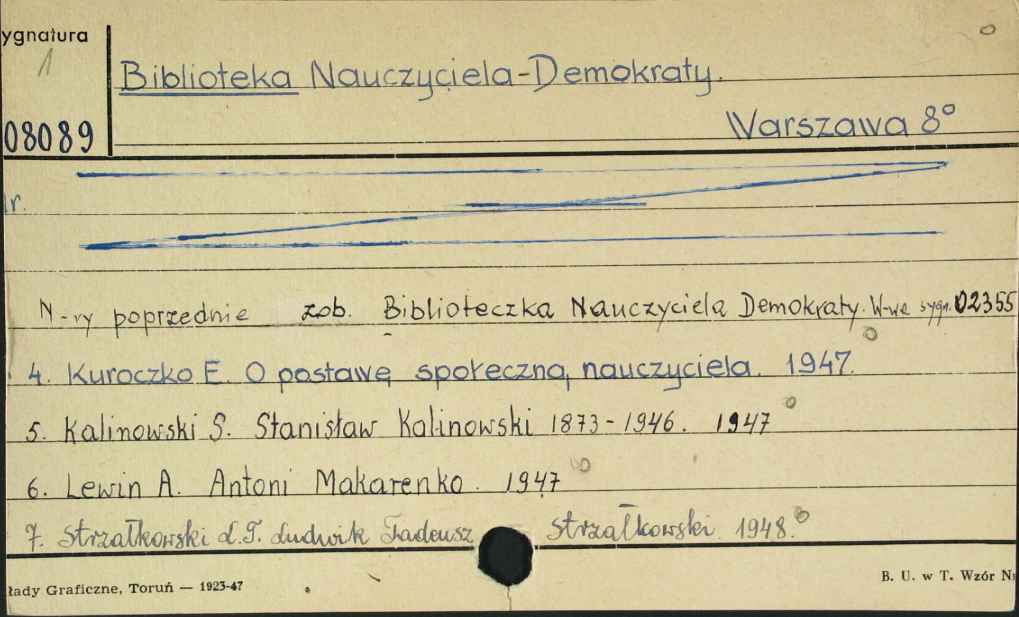 ygnatura
1
08089
Biblioteka Nauczyciela-Demokraty.
Warszawa 8°
Ir.
N-ry poprzednie zob. Biblioteczka Nauczyciela Demokraty. W-wa sygn. 02355
4. Kuroczko E. O postawę społeczną nauczyciela. 1947.
5. Kalinowski S. Stanisław Kalinowski 1873-1946. 1947
6. Lewin A. Antoni Makarenko. 1947
7. Strzałkowski L.T. Ludwik Tadeusz Strzałkowski. 1948.
łady Graficzne, Toruń — 1923-47
B. U. w T. Wzór Nr